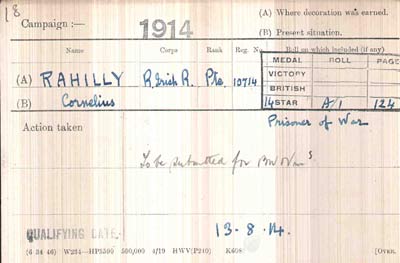 18
Campaign :— 1914 (A) Where decoration was earned.
(B) Present situation.
Name Corps Rank Reg. No. Roll on which included (if any)
MEDAL ROLL PAGE
(A) RAHILLY R. Irish R. Pte. 10714 VICTORY
BRITISH
(B) Cornelius 14 STAR A/1 124
Action taken Prisoner of War
To be submitted for
QUALIFYING DATE. 13-8-14.
(6 34 46) W234—HP5590 500,000 4/19 HWV(P240) K608 [OVER.